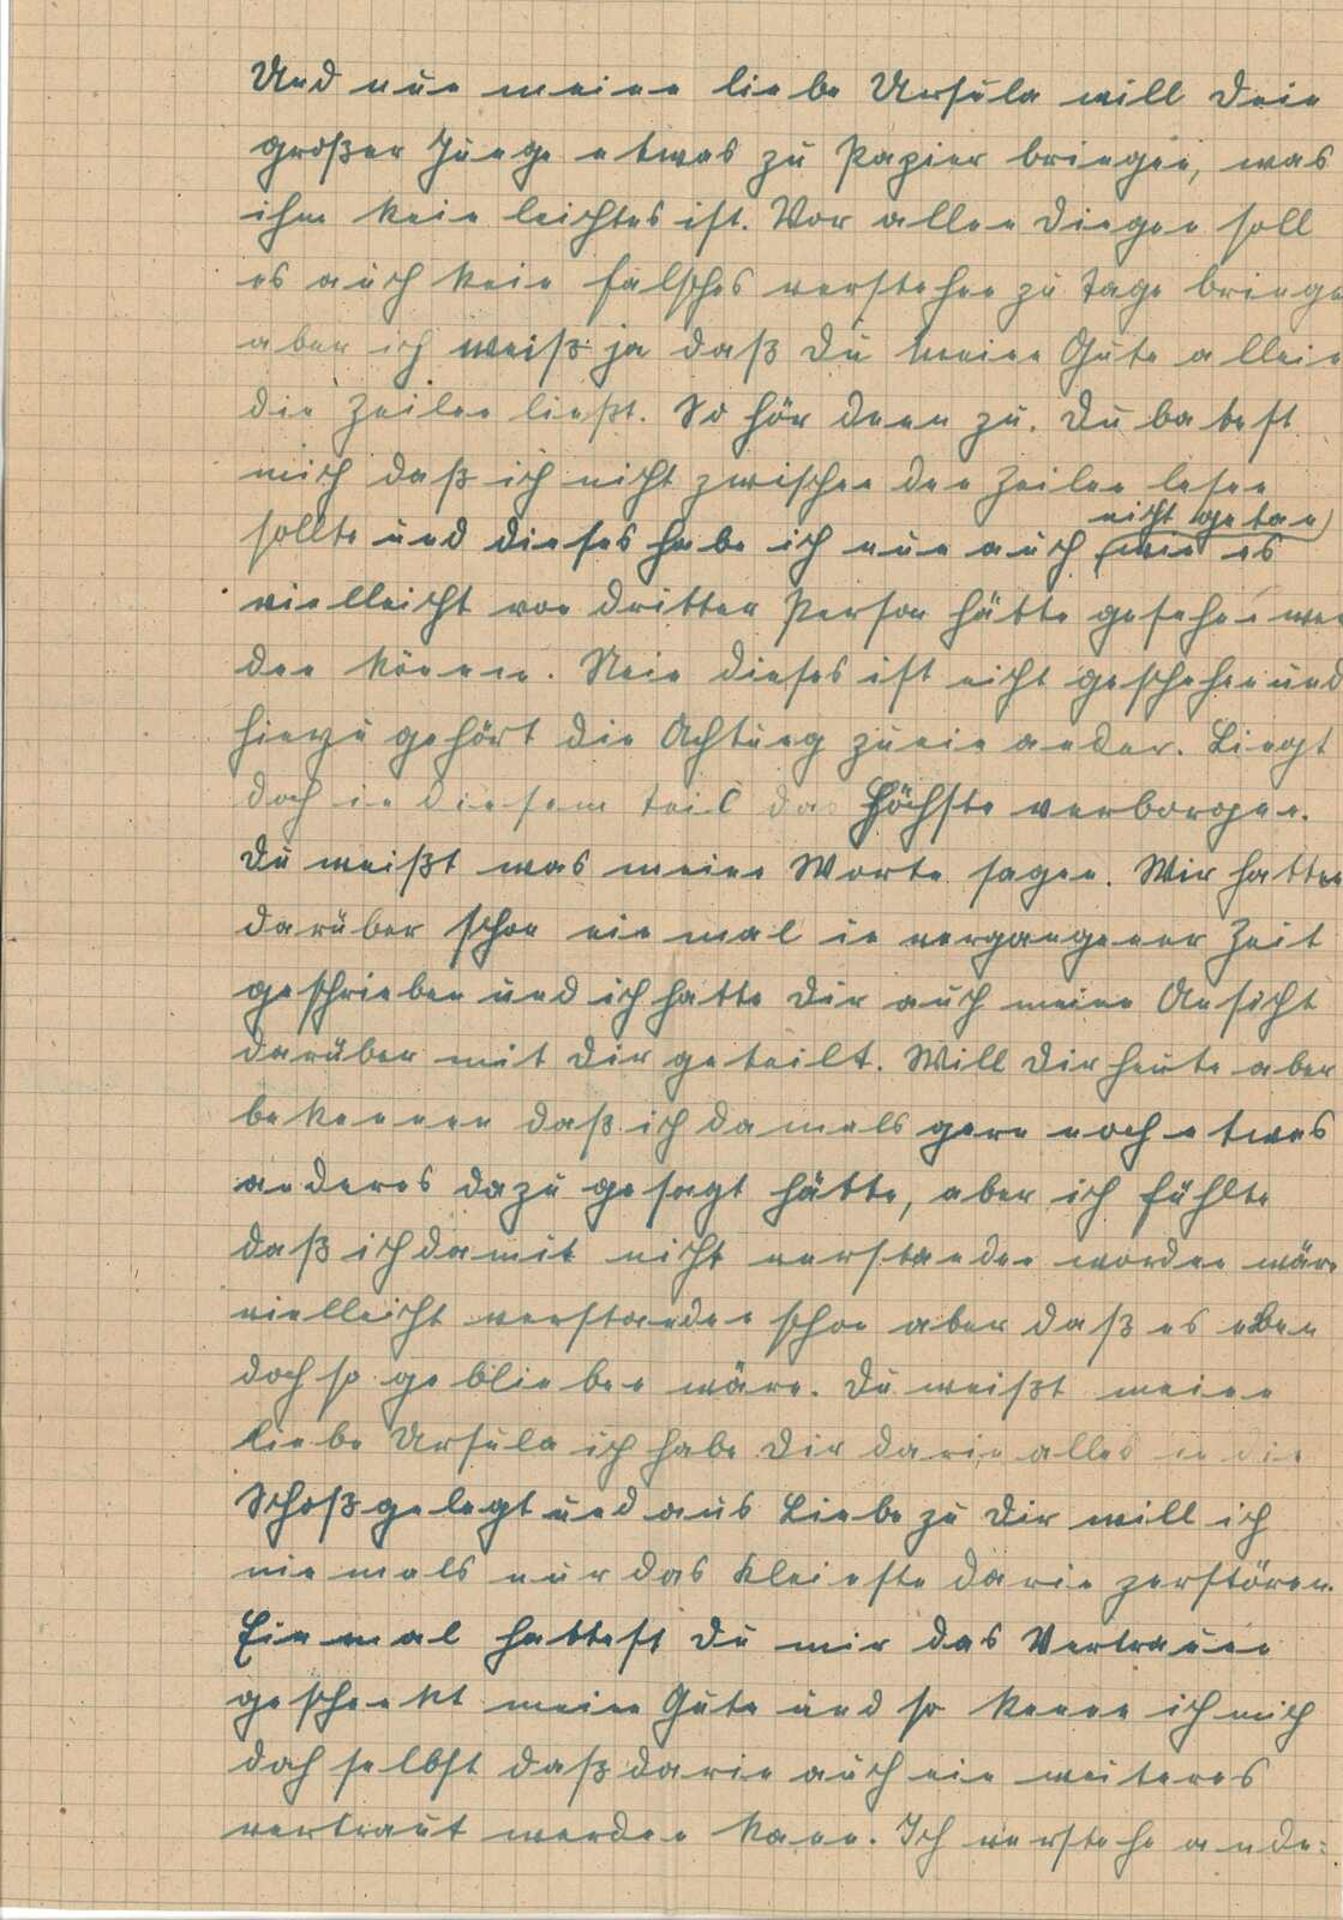 Und nun meine liebe Ursula will Dein
großer Junge etwas zu Papier bringen, was
ihm kein leichtes ist. Vor allen Dingen soll
es auch kein falsches verstehen zu tage bringe
aber ich weiß ja daß Du meine Gute allein
die Zeilen ließt. So hör denn zu. Du batest
mich daß ich nicht zwischen den Zeilen lesen
sollte und dieses habe ich nun auch nicht getan wie es
vielleicht von dritter Person hätte gesehen wer
den können. Nein dieses ist nicht geschehen und
hinzu gehört die Achtung zueinander. Liegt
doch in diesem teil das Höchste verborgen.
Du weißt was meine Worte sagen. Wir hatten
darüber schon einmal in vergangener Zeit
geschrieben und ich hatte Dir auch meine Ansicht
darüber mit Dir geteilt. Will Dir heute aber
bekennen daß ich damals gern noch etwas
anderes dazu gesagt hätte, aber ich fühlte
daß ich damit nicht verstanden worden wäre
vielleicht verstanden schon aber daß es eben
doch so geblieben wäre. Du weißt meine
liebe Ursula ich habe Dir darin alles in die
Schoß gelegt und aus Liebe zu Dir will ich
niemals nur das kleinste darin zerstören.
Einmal hattest Du mir das Vertrauen
geschenkt meine Gute und so kenne ich mich
doch selbst daß darin auch ein weiteres
vertraut werden kann. Ich verstehe ande: